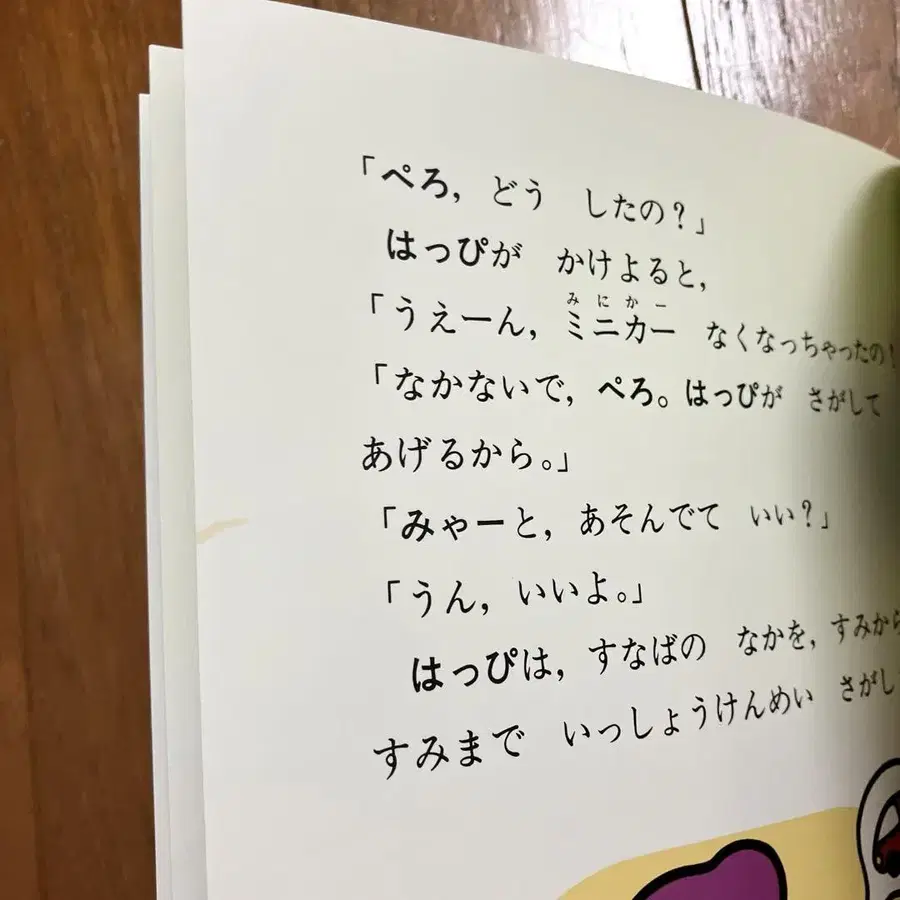 「ぺろ，どう　したの？」
はっぴが　かけよると，
みにかー
「うえーん，ミニカー　なくなっちゃったの！
「なかないで，ぺろ。はっぴが　さがして
あげるから。」
「みゃーと，あそんでて　いい？」
「うん，いいよ。」
はっぴは，すなばの　なかを，すみから
すみまで　いっしょうけんめい　さがし